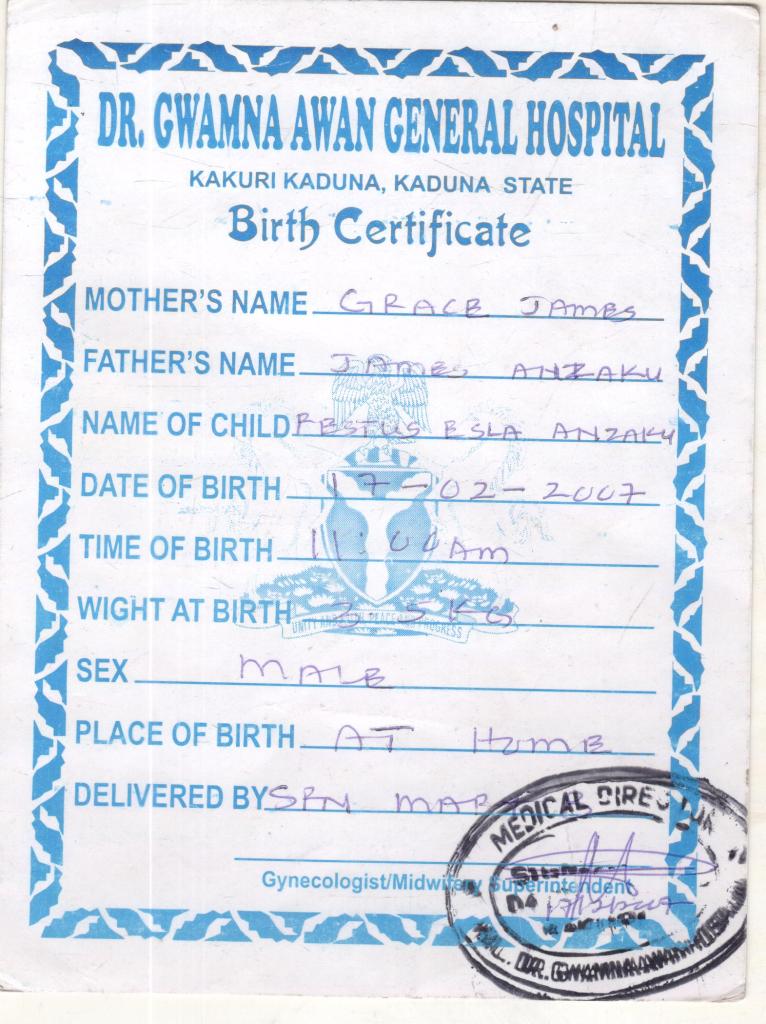 DR. GWAMNA AWAN GENERAL HOSPITAL
KAKURI KADUNA, KADUNA STATE
Birth Certificate
MOTHER'S NAME GRACE JAMES
FATHER'S NAME JAMES ANZAKU
NAME OF CHILD FESTUS ESLA ANZAKU
DATE OF BIRTH 17-02-2007
TIME OF BIRTH 11:00AM
WIGHT AT BIRTH 3 5KG
SEX MALE
PLACE OF BIRTH AT HOME
DELIVERED BY SRN MARY
Gynecologist/Midwifery Superintendent
MEDICAL DIRECTOR
DR. GWAMNA AWAN